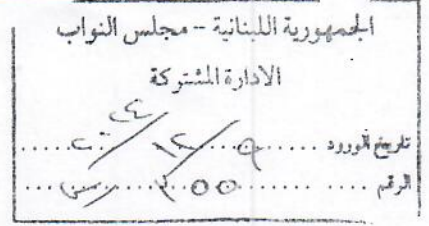 الجمهورية اللبنانية -- مجلس النواب
الادارة المشتركة
تاريخ الورود ..... ٩/١٢/٢٠٢٤ .....
الرقم ....